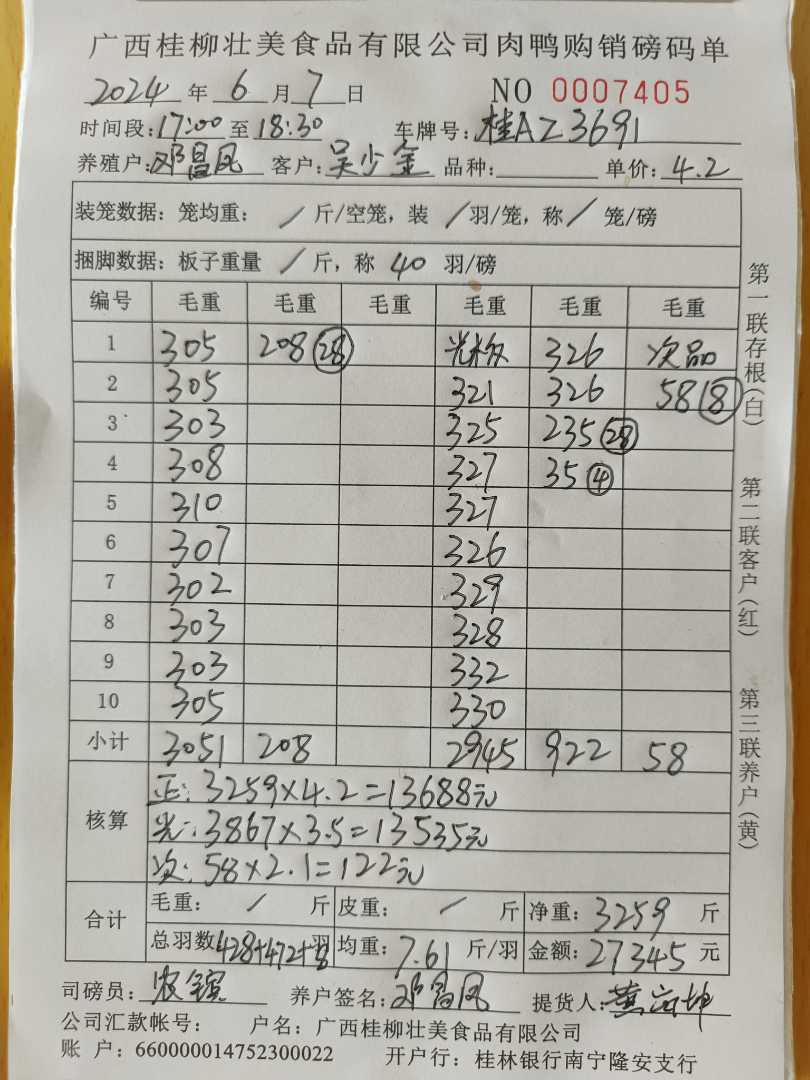 广西桂柳壮美食品有限公司肉鸭购销磅码单
2024 年 6 月 7 日 NO 0007405
时间段:17:00 至 18:30 车牌号:桂AZ3691
养殖户:邓昌凤 客户:吴少金 品种: 单价:4.2
装笼数据:笼均重: / 斤/空笼,装 / 羽/笼,称 / 笼/磅
捆脚数据:板子重量 / 斤,称 40 羽/磅
编号 毛重 毛重 毛重 毛重 毛重 毛重
1 305 208(28) 光板 326 次品
2 305 321 326 58(8)
3 303 325 235(28)
4 308 327 35(4)
5 310 327
6 307 326
7 302 329
8 303 328
9 303 332
10 305 330
小计 3051 208 2945 922 58
核算
正:3259×4.2=13688元
光:3867×3.5=13535元
次:58×2.1=122元
合计
毛重: / 斤 皮重: / 斤 净重:3259 斤
总羽数428+472+8羽 均重:7.61 斤/羽 金额:27345 元
司磅员: 养户签名:邓昌凤 提货人:黄
公司汇款帐号: 户名:广西桂柳壮美食品有限公司
账 户:660000014752300022 开户行:桂林银行南宁隆安支行
第一联存根(白)
第二联客户(红)
第三联养户(黄)